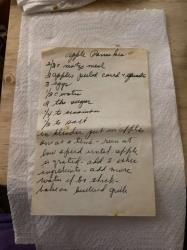 Apple
2/3 c matzo meal
3 apples peeled cored +
3 eggs
1/2 c water
4 tbs sugar
1/4 ts cinnamon
1/2 ts salt
in blender put an apple
on at a time - run at
low speed until apple
is grated. add 3 other
ingredients - add more
water if too thick -
bake on buttered grill